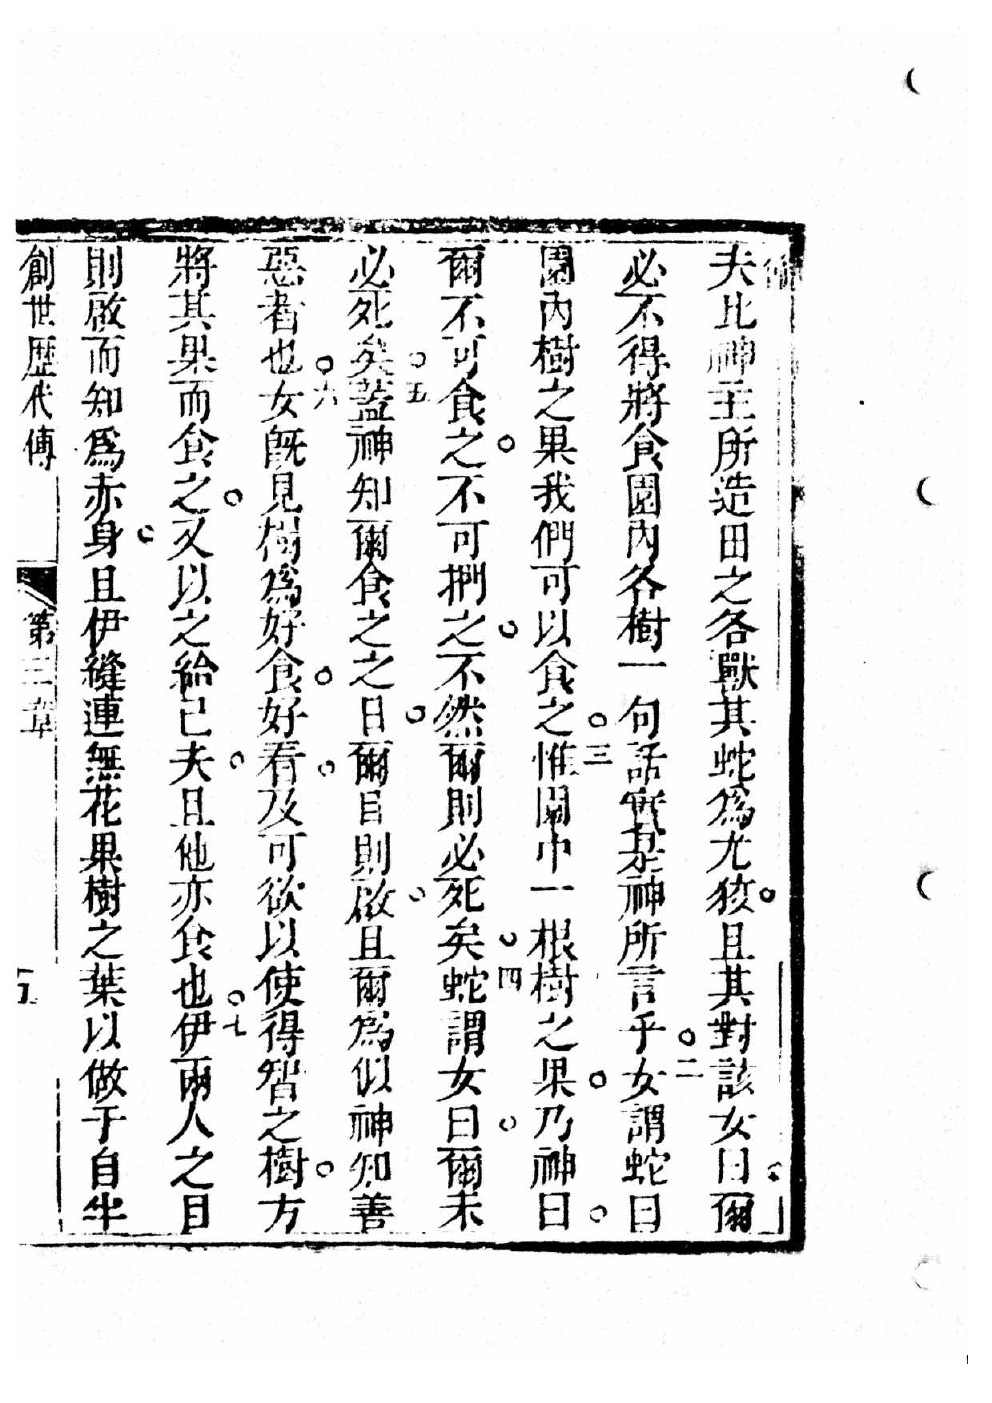 夫比神主所造田之各獸其蛇爲尤狡。且其對該女曰爾
必不得將食園內各樹一句話實是神所言乎。二女謂蛇曰
園內樹之果我們可以食之。三惟園中一根樹之果。乃神曰。
爾不可食之。不可捫之。不然爾則必死矣。四蛇謂女曰。爾未
必死矣。五蓋神知爾食之之日。爾目則啟。且爾爲似神知善
惡者也。六女既見樹爲好食。好看。及可欲以使得智之樹。方
將其果而食之。又以之給己夫。且他亦食也。七伊兩人之目
則啟而知爲赤身。且伊縫連無花果樹之葉以做于自
創世歷代傳 第三章 五